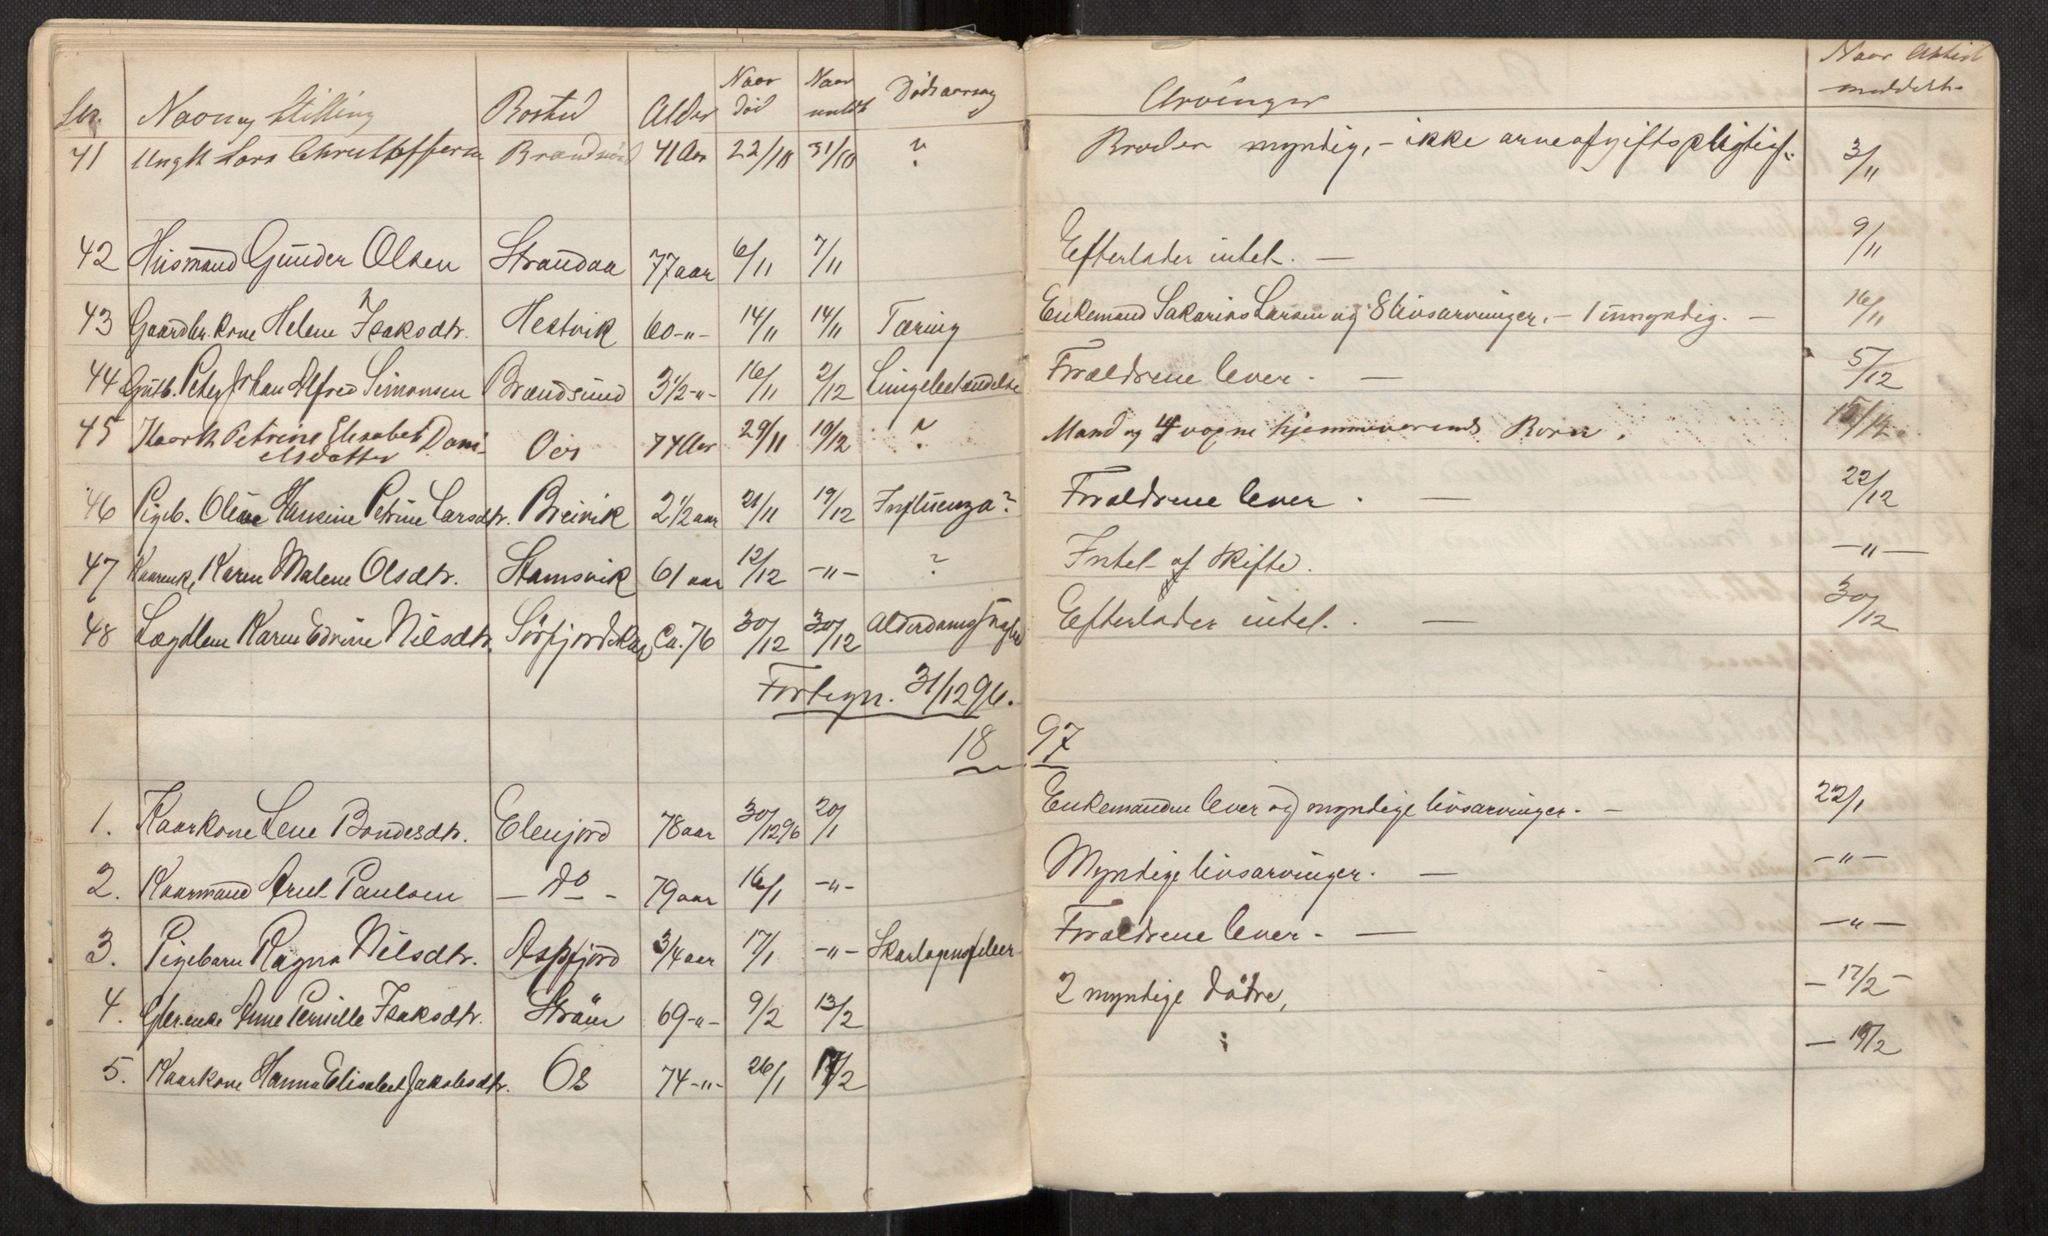 Navn og Stilling Bosted Alder Naar död Naar meldt Dødsaarsag Arvinger Naar Attest meddelt
41 Ungk Lars Christoffersen Brandsund 41 Aar 22/10 31/10 ? Broder myndig, - ikke arveafgiftspligtig. 3/11
42 Husmand Gunder Olsen Strandaa 77 aar 6/11 7/11 Efterlader intet. — 9/11
43 Gaardbr. kone Helene Isaksdtr. Hestvik 60 -"- 14/11 14/11 Tæring Enkemand Sakarias Larsen og 8 livsarvinger, - 1 umyndig. — 16/11
44 Gutb. Peter Johan Alfred Simonsen Brandsund 3 1/2 -"- 16/11 2/12 Lungebetændelse Forældrene lever. — 5/12
45 Kaark Petrine Elisabet Dani-
elsdatter Oes 74 Aar 29/11 19/12 ? Mand og 4 voxne hjemmeværende Børn.
46 Pigeb. Oline Hansine Petrine Larsdtr. Breivik 2 1/2 aar 21/11 19/12 Influenza? Forældrene lever. — 22/12
47 Kaarenk, Karen Malene Olsdtr. Stamsvik 61 aar 12/12 -"- ? Intet af Skifte. -"-
48 Lægdlem Karen Edvine Nilsdtr. Sörfjordskar Ca. 76 30/12 30/12 Alderdomssvaghed Efterlader intet. — 30/12
Fortegn. 31/12 96.
18 97
1. Kaarkone Lene Bondesdtr. Elenjord 78 aar 30/12 96 20/1 Enkemanden lever og myndige livsarvinger. — 22/1
2. Kaarmand Arnt Paulsen — do — 79 aar 16/1 -"- Myndige livsarvinger. — -"-
3. Pigebarn Ragna Nilsdtr. Aspfjord 3/4 aar 17/1 -"- Skarlagensfeber Forældrene lever. — -"-
4. Gbr.enke Anne Pernille Isaksdtr. Ström 69 -"- 9/2 13/2 2 myndige Døtre, — 17/2 -
5. Kaarkone Hanna Elisabet Jakobsdtr. Os 74 -"- 26/1 17/2 — 19/2